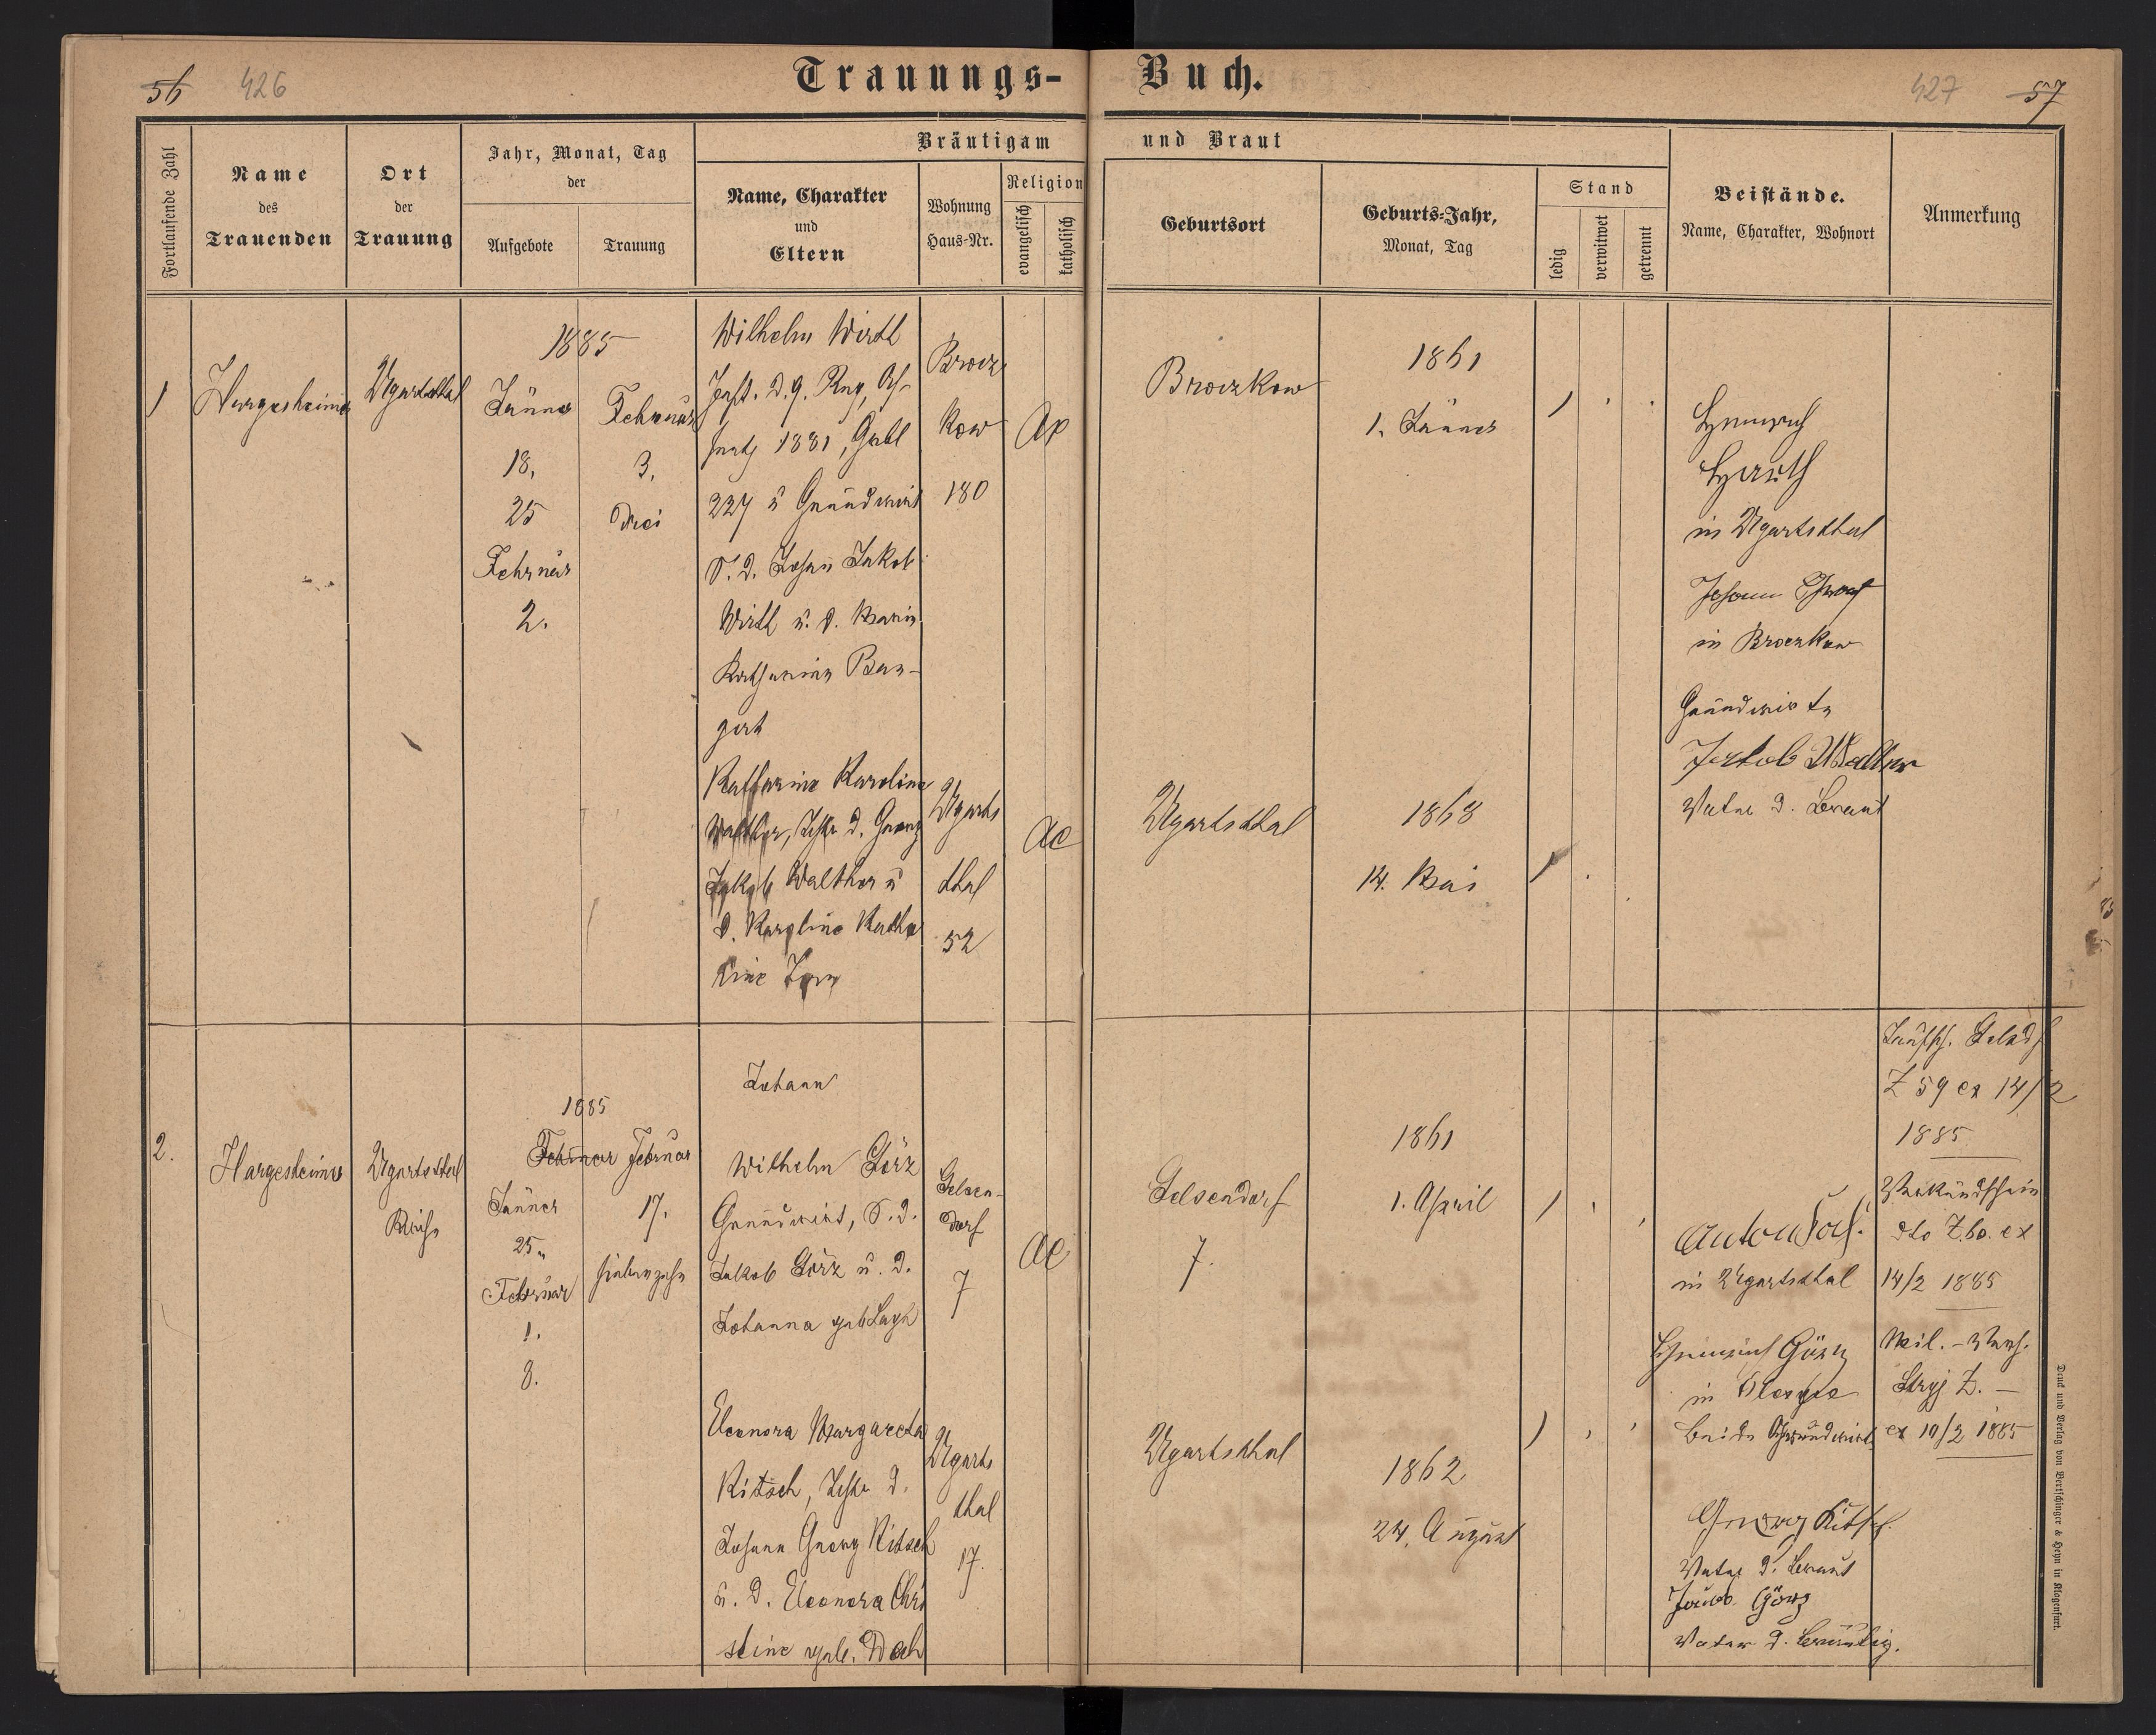 56 426
Trauungs-Buch.
427 57
Fortlaufende Zahl
Name
des
Trauenden
Ort
der
Trauung
Jahr, Monat, Tag
der
Aufgebote
Trauung
Bräutigam und Braut
Name, Charakter
und
Eltern
Wohnung
Haus-Nr.
Religion
evangelisch
katholisch
Geburtsort
Geburts-Jahr,
Monat, Tag
Stand
ledig
verwitwet
getrennt
Beistände.
Name, Charakter, Wohnort
Anmerkung
1
Hargesheimer
Ugartsthal
1885
Jänner
18.
25
Februar
2.
Februar
3.
Drei
Wilhelm Wirth
1881
227 u Grundwirt
S. d. Johann Jakob
Wirth u. d. Maria
Katharina Ban-
gert
Brocz
kow
180
Broczkow
1861
1. Jänner
Heinrich
in Ugartsthal
Johann
in Broczkow
Grundwirte
Jakob Walther
Vater d. Braut
Katharina Karolina
Walther, Tchtr d. Georg
Jakob Walther u
d. Karoline Katha
rine
Ugarts
thal
52
Ugartsthal
1868
14. Mai
2.
Hargesheimer
Ugartsthal
Kirche
1885
Februar
Jänner
25.
Februar
1.
8.
17.
siebenzehn
Johann
Wilhelm Görz
Grundwirt, S. d.
Jakob Görz u. d.
Johanna geb
Gelsen-
dorf
7
Gelsendorf
7.
1861
1. April
Anton
in Ugartsthal
Heinrich Görz
in
beide Grundwirte
Georg Kitsch
Vater d. Braut
Jakob Görz
Vater d. Bräutig.
Z 59 ex 14/2
1885
Verkündschein
dto Z. 60. ex
14/2 1885
Mil. -
Stryj Z. —
ex 10/2 1885
Eleonora Margareta
Kitsch, Tchtr d.
Johann Georg Kitsch
u. d. Eleonora Chri
stine geb.
Ugarts
thal
17.
Ugartsthal
1862
24. August
Druck und Verlag von Bertschinger & Heyn in Klagenfurt.